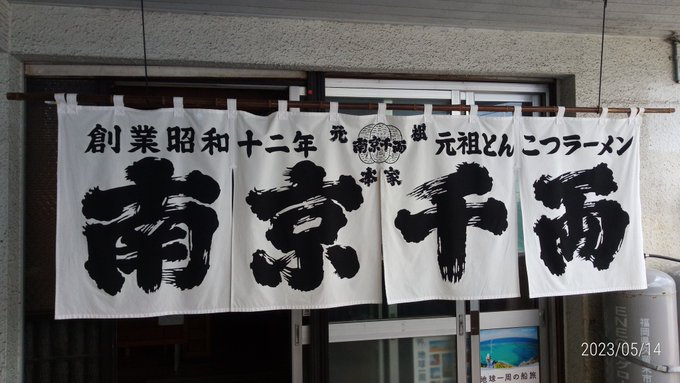 創業昭和十二年
元祖
南京千両
本家
元祖とんこつラーメン
南京千両
地球一周の船旅
2023/05/14